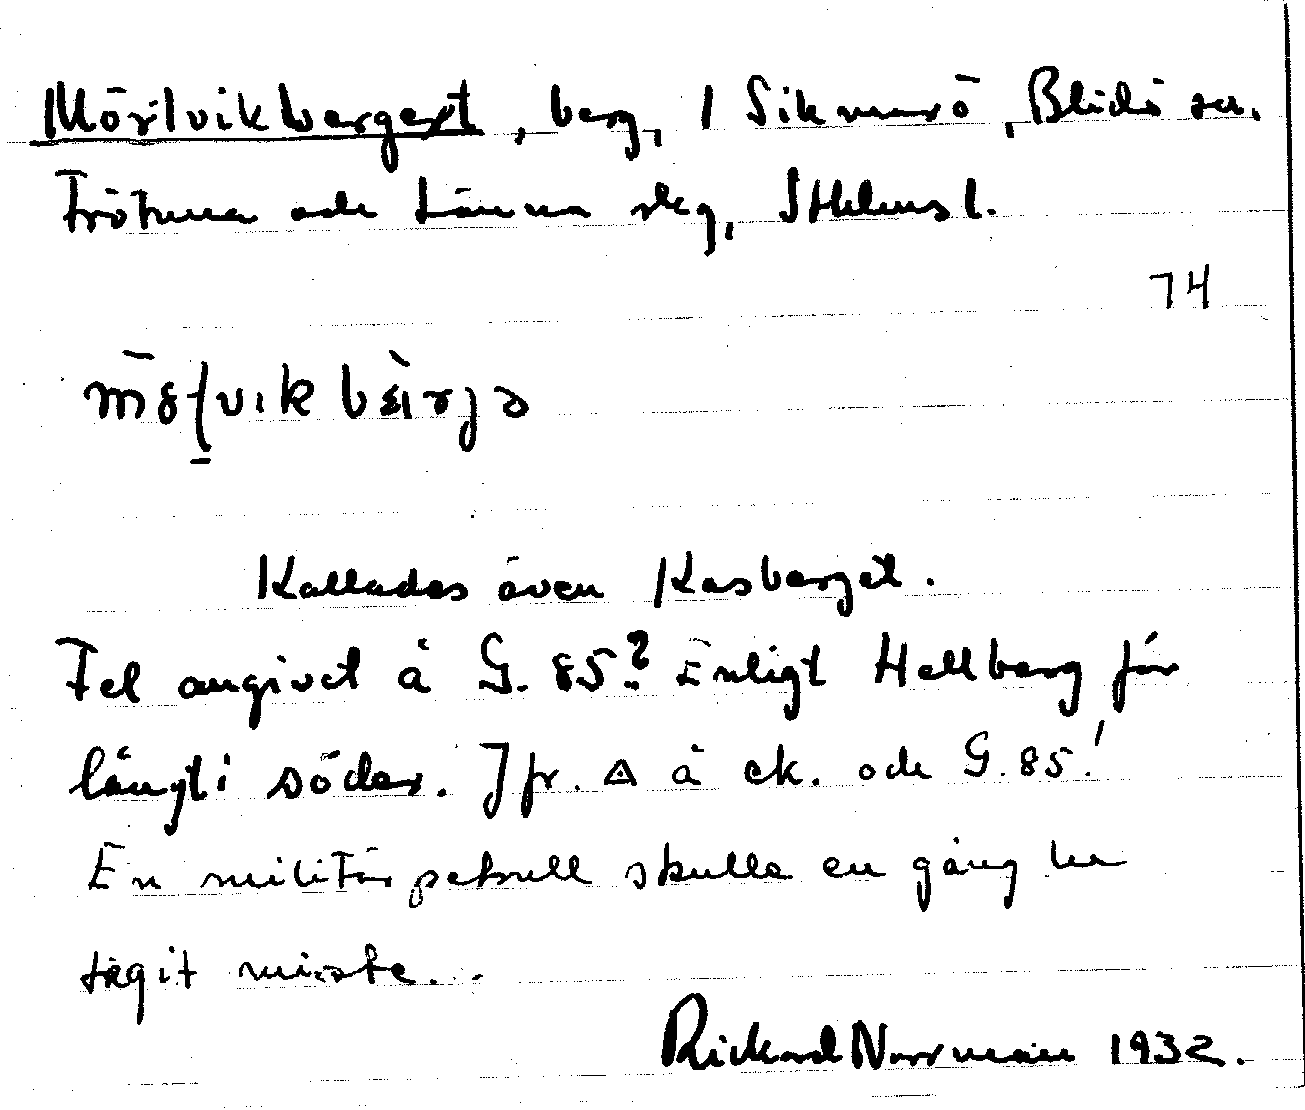 Mörtvikberget, berg, 1 Sikmarö, Blidö sn.
Frötuna och Länna skg, Sthlms l.
74
Kallades även Kasberget.
Fel angivet å G. 85? Enligt Hellberg för
långt i söder. Jfr. △ å ek. och G. 85!
En militärpatrull skulle en gång ha
tagit miste...
Rickard Norrman 1932.